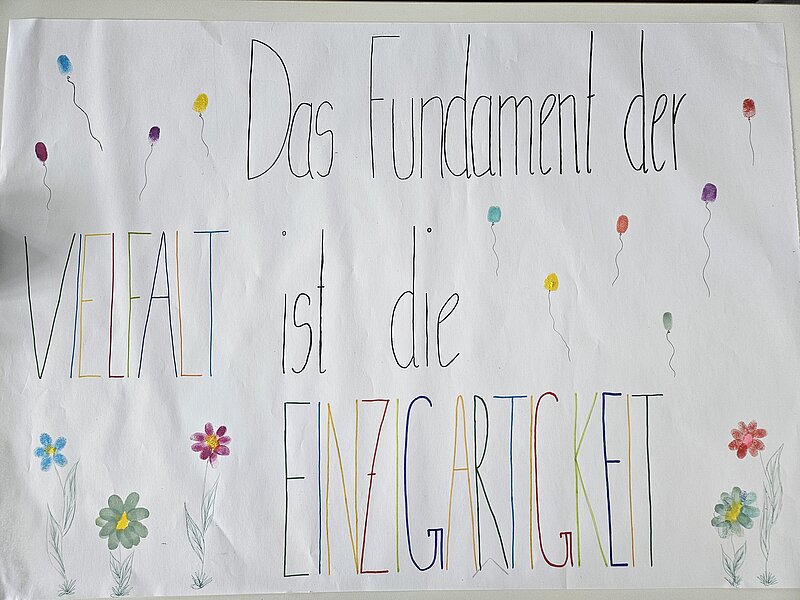 Das Fundament der
VIELFALT ist die
EINZIGARTIGKEIT